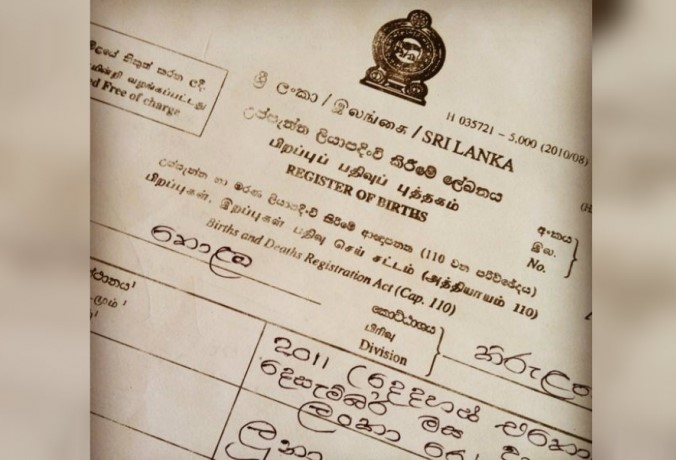 නිකුත් කරන ලදී.
வழங்கப்பட்டது
Free of charge
ශ්‍රී ලංකා / இலங்கை / SRI LANKA
H 035721 – 5,000 (2010/08)
උප්පැන්න ලියාපදිංචි කිරීමේ ලේඛනය
பிறப்புப் பதிவுப் புத்தகம்
REGISTER OF BIRTHS
උප්පැන්න හා මරණ ලියාපදිංචි කිරීමේ ආඥාපනත (110 වන පරිච්ඡේදය)
பிறப்புகள், இறப்புகள் பதிவு செய் சட்டம் (அத்தியாயம் 110)
Births and Deaths Registration Act (Cap. 110)
අංකය
இல.
No.
කොට්ඨාශය
பிரிவு
Division
2011
දෙසැම්බර් මස
ලංකා